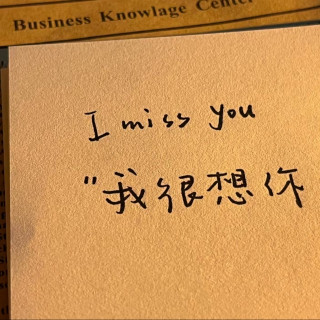 Business Knowlage Center
I miss you
"我很想你